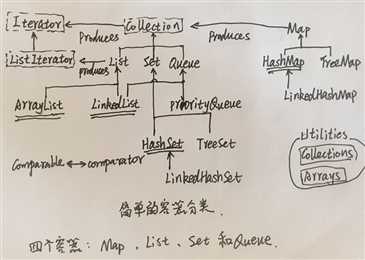 Iterator Produces Collection Produces Map
ListIterator produces List Set Queue HashMap TreeMap
ArrayList LinkedList PriorityQueue LinkedHashMap
HashSet TreeSet Utilities
Comparable comparator Collections
LinkedHashSet Arrays
简单的容器分类.
四个容器: Map、List、Set和Queue.